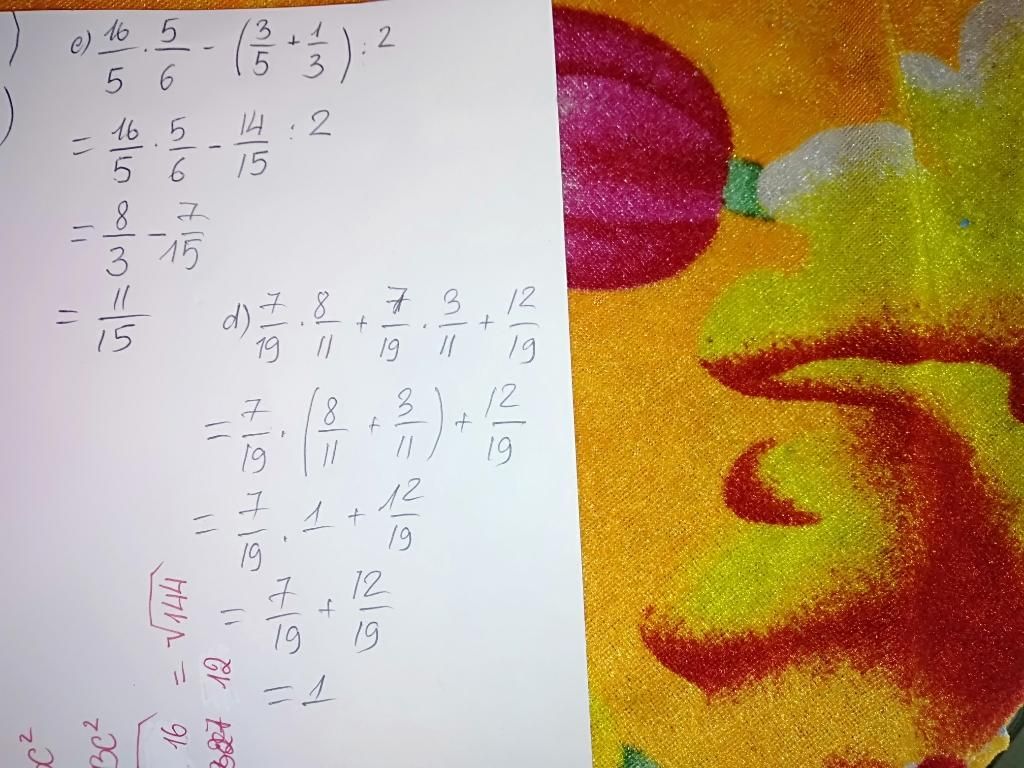 e) 16/5 . 5/6 - (3/5 + 1/3) : 2
= 16/5 . 5/6 - 14/15 : 2
= 8/3 - 7/15
= 11/15
d) 7/19 . 8/11 + 7/19 . 3/11 + 12/19
= 7/19 . (8/11 + 3/11) + 12/19
= 7/19 . 1 + 12/19
= 7/19 + 12/19
= 1
= √144
16
12